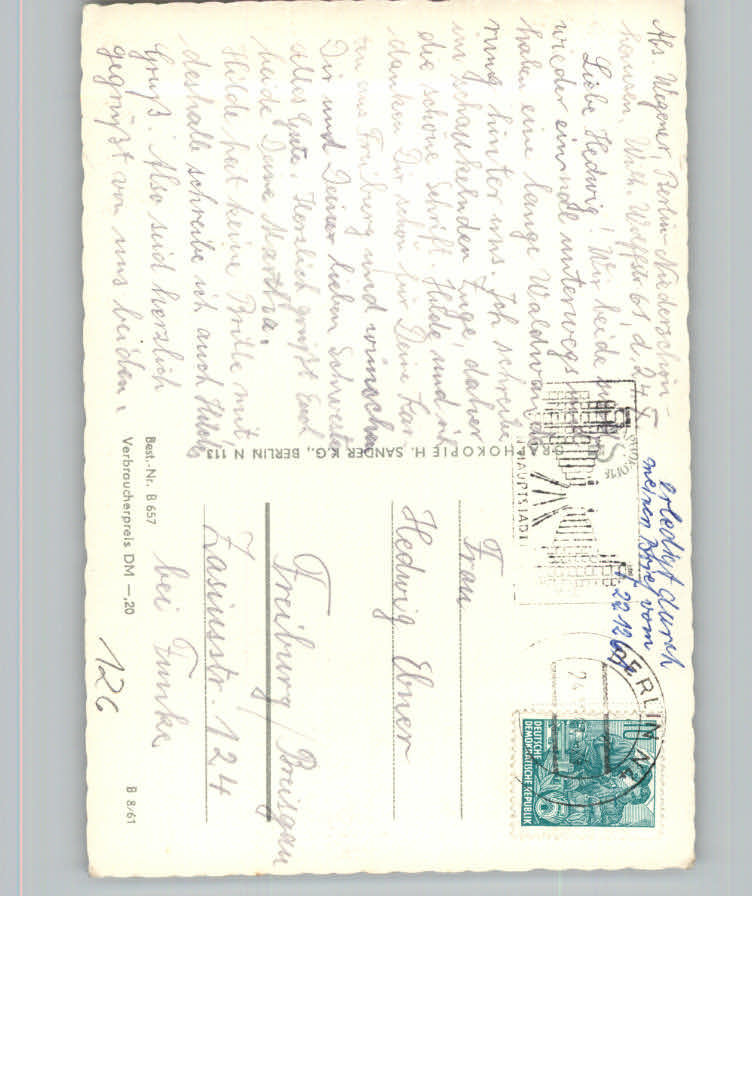 Abs. Wegener, Berlin-Niederschön-
hausen, Wilh. Wolffstr. 61, d. 24.
Liebe Hedwig! Wir beide sind
wieder einmal unterwegs und
haben eine lange Waldwande-
rung hinter uns. Ich schreibe
im schaukelnden Zuge, daher
die schöne Schrift. Hilde und ich
danken Dir schön für Deine Kar-
ten aus Freiburg und wünschen
Dir und Deiner lieben Schwester
alles Gute. Herzlich grüßt Euch
beide Deine Martha.
Hilde hat keine Brille mit
deshalb schreibe ich auch Hildes
Gruß. Also seid herzlich
gegrüßt von uns beiden.
GRAPHOKOPIE H. SANDER K.G., BERLIN N 113
Best.-Nr. B 657
Verbraucherpreis DM –,20
HAUPTSTADT
Erledigt durch
meinen Brief vom
22.12.
BERLIN N4
24
10
DEUTSCHE
DEMOKRATISCHE REPUBLIK
Frau
Hedwig Ebner
Freiburg / Breisgau
Zasiusstr. 124
bei Funke
126
B 8/61